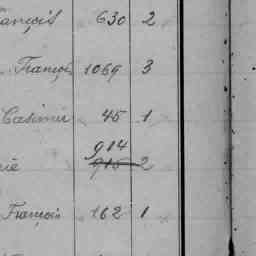 ançois 630 2
François 1069 3
Casimir 45 1
914
rie 915 2
François 162 1